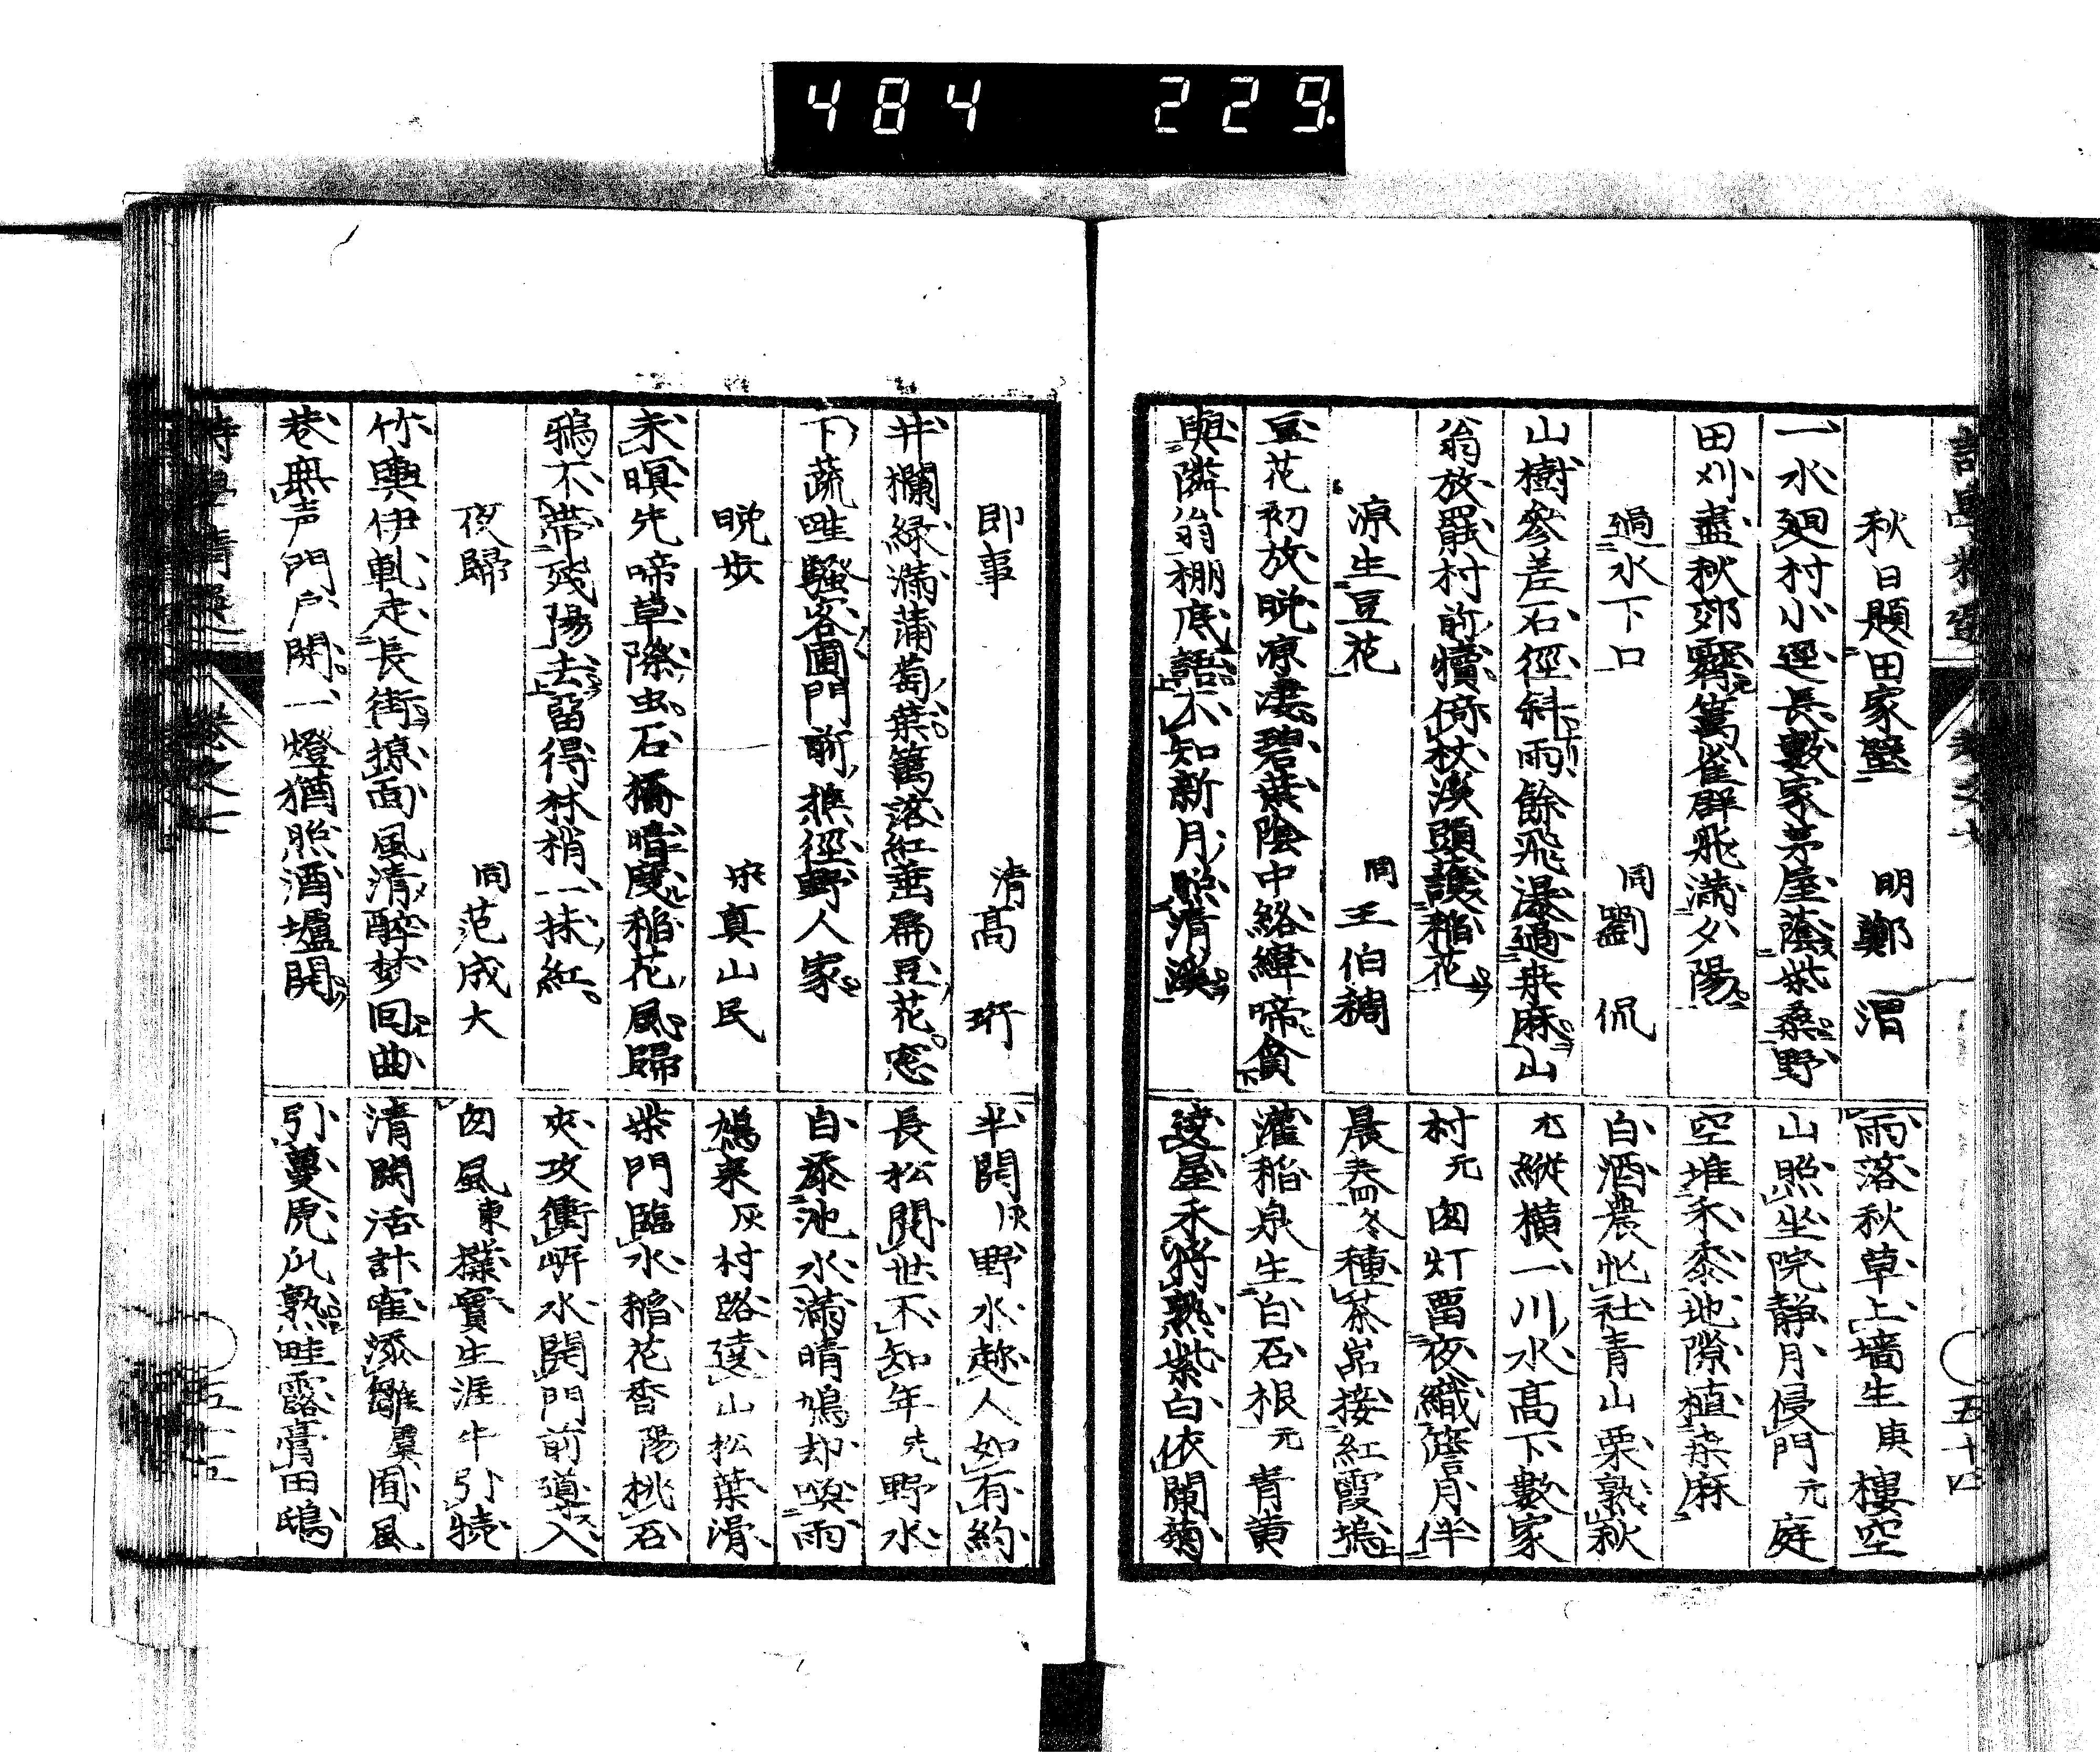 484 229
秋日題田家壁 明鄭 渭
一水廻村小逕長數家茅屋蔭柴桑野
田刈盡秋郊霽萬雀群飛滿夕陽
過水下口 同劉 侃
山樹參差石徑斜雨餘飛瀑過桒麻山
翁放罷村前犢倚杖溪頭護稻花
凉生豆花 同王伯稠
豆花初放晩凉凄碧葉陰中絡緯啼貪
與隣翁棚底語不知新月照清溪
雨落秋草上墻生庚樓空
山照坐院靜月侵門元庭
空堆禾黍地隙植桒麻
白酒農忙社青山栗熟秋
尤縱橫一川水高下數家
村元囱灯畱夜織簷月伴
晨舂冬種茶岩接紅霞塢
灌稻泉生白石根元青黄
遶屋禾將熟紫白依闌菊
五十四
即事 清高 珩
井欄緑滿蒲萄葉籬落紅垂扁豆花窓
下蔬畦騷客圃門前樵徑野人家
晩歩 宋真山民
未暝先啼草際虫石橋暗度稻花風歸
鴉不帶殘陽去畱得林梢一抹紅
夜歸 同范成大
竹輿伊軋走長街掠面風清醉梦回曲
巷無声門戸閉一燈猶照酒壚開
半開灰野水趁人如有約
長松閲世不知年先野水
自添池水滿晴鳩却喚雨
鳩来灰村路遶山松葉滑
柴門臨水稻花香陽桃石
夾攻衝岍水開門前導入
囱風東撲實生涯牛引犢
清閑活計雀添雛虞圃風
引蔓虎爪熟畦露膏田鴟
卷之七
五十五